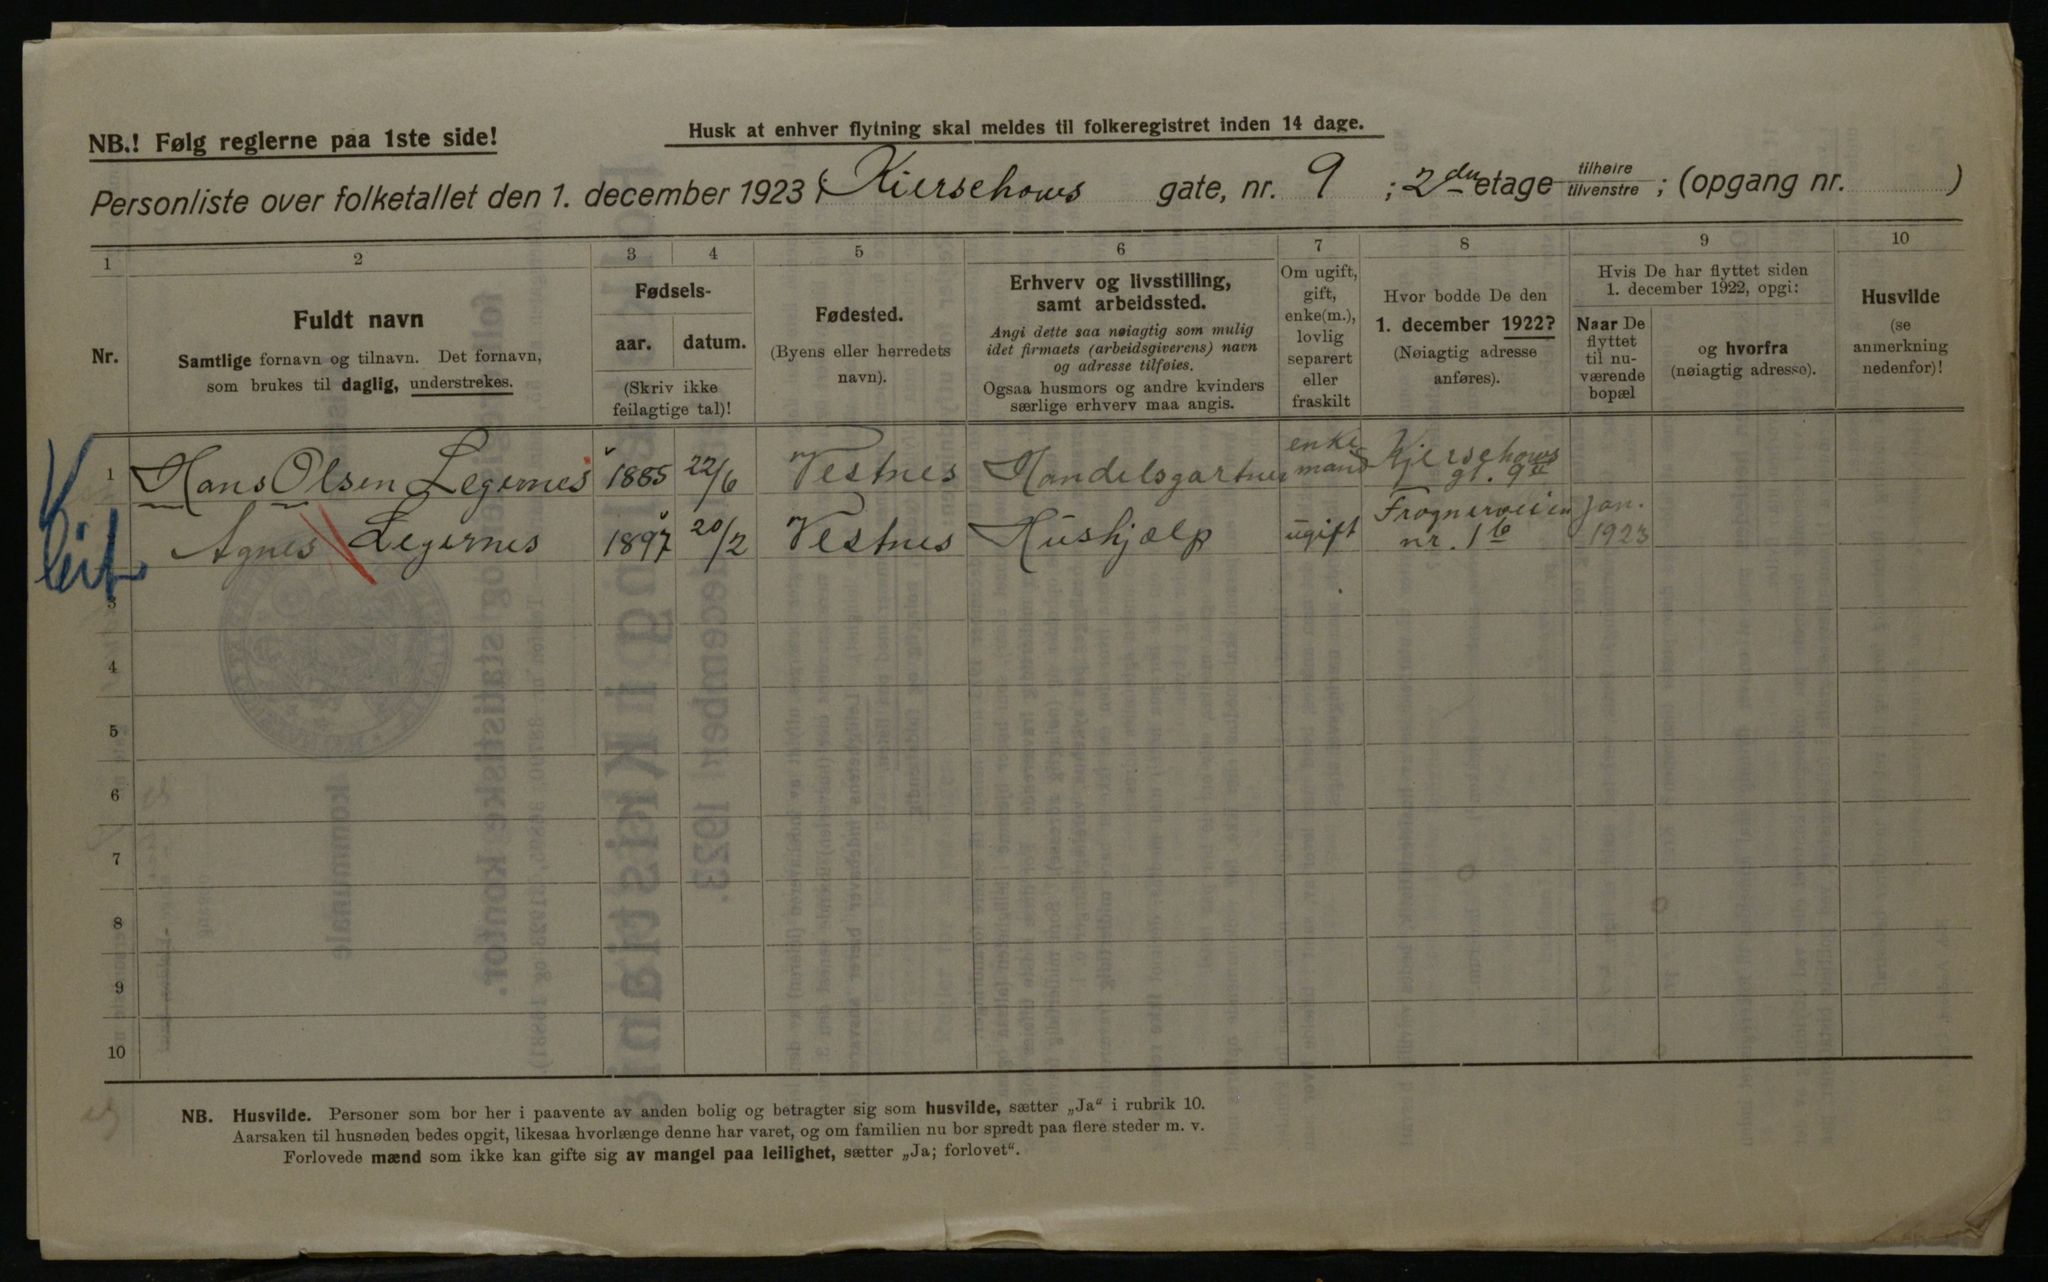 NB.! Følg reglerne paa 1ste side!
Husk at enhver flytning skal meldes til folkeregistret inden 14 dage.
Personliste over folketallet den 1. december 1923 (Kierschows gate, nr. 9 ; 2den etage tilhøire tilvenstre ; (opgang nr. )
1 2 3 4 5 6 7 8 9 10
Nr.
Fuldt navn
Samtlige fornavn og tilnavn. Det fornavn,
som brukes til daglig, understrekes.
Fødsels-
aar. datum.
(Skriv ikke
feilagtige tal)!
Fødested.
(Byens eller herredets
navn).
Erhverv og livsstilling,
samt arbeidssted.
Angi dette saa nøiagtig som mulig
idet firmaets (arbeidsgiverens) navn
og adresse tilføies.
Ogsaa husmors og andre kvinders
særlige erhverv maa angis.
Om ugift,
gift,
enke(m.),
lovlig
separert
eller
fraskilt
Hvor bodde De den
1. december 1922?
(Nøiagtig adresse
anføres).
Hvis De har flyttet siden
1. december 1922, opgi:
Naar De
flyttet
til nu-
værende
bopæl
og hvorfra
(nøiagtig adresse).
Husvilde
(se
anmerkning
nedenfor)!
1 Hans Olsen Legernes 1885 22/6 Vestnes Handelsgartner enke mand Kjerschows gt. 9II
Agnes Legernes 1897 20/2 Vestnes Hushjælp ugift Frognerveien nr. 1b Jan. 1923
3
4
5
6
7
8
9
10
NB. Husvilde. Personer som bor her i paavente av anden bolig og betragter sig som husvilde, sætter „Ja“ i rubrik 10.
Aarsaken til husnøden bedes opgit, likesaa hvorlænge denne har varet, og om familien nu bor spredt paa flere steder m. v.
Forlovede mænd som ikke kan gifte sig av mangel paa leilighet, sætter „Ja; forlovet“.